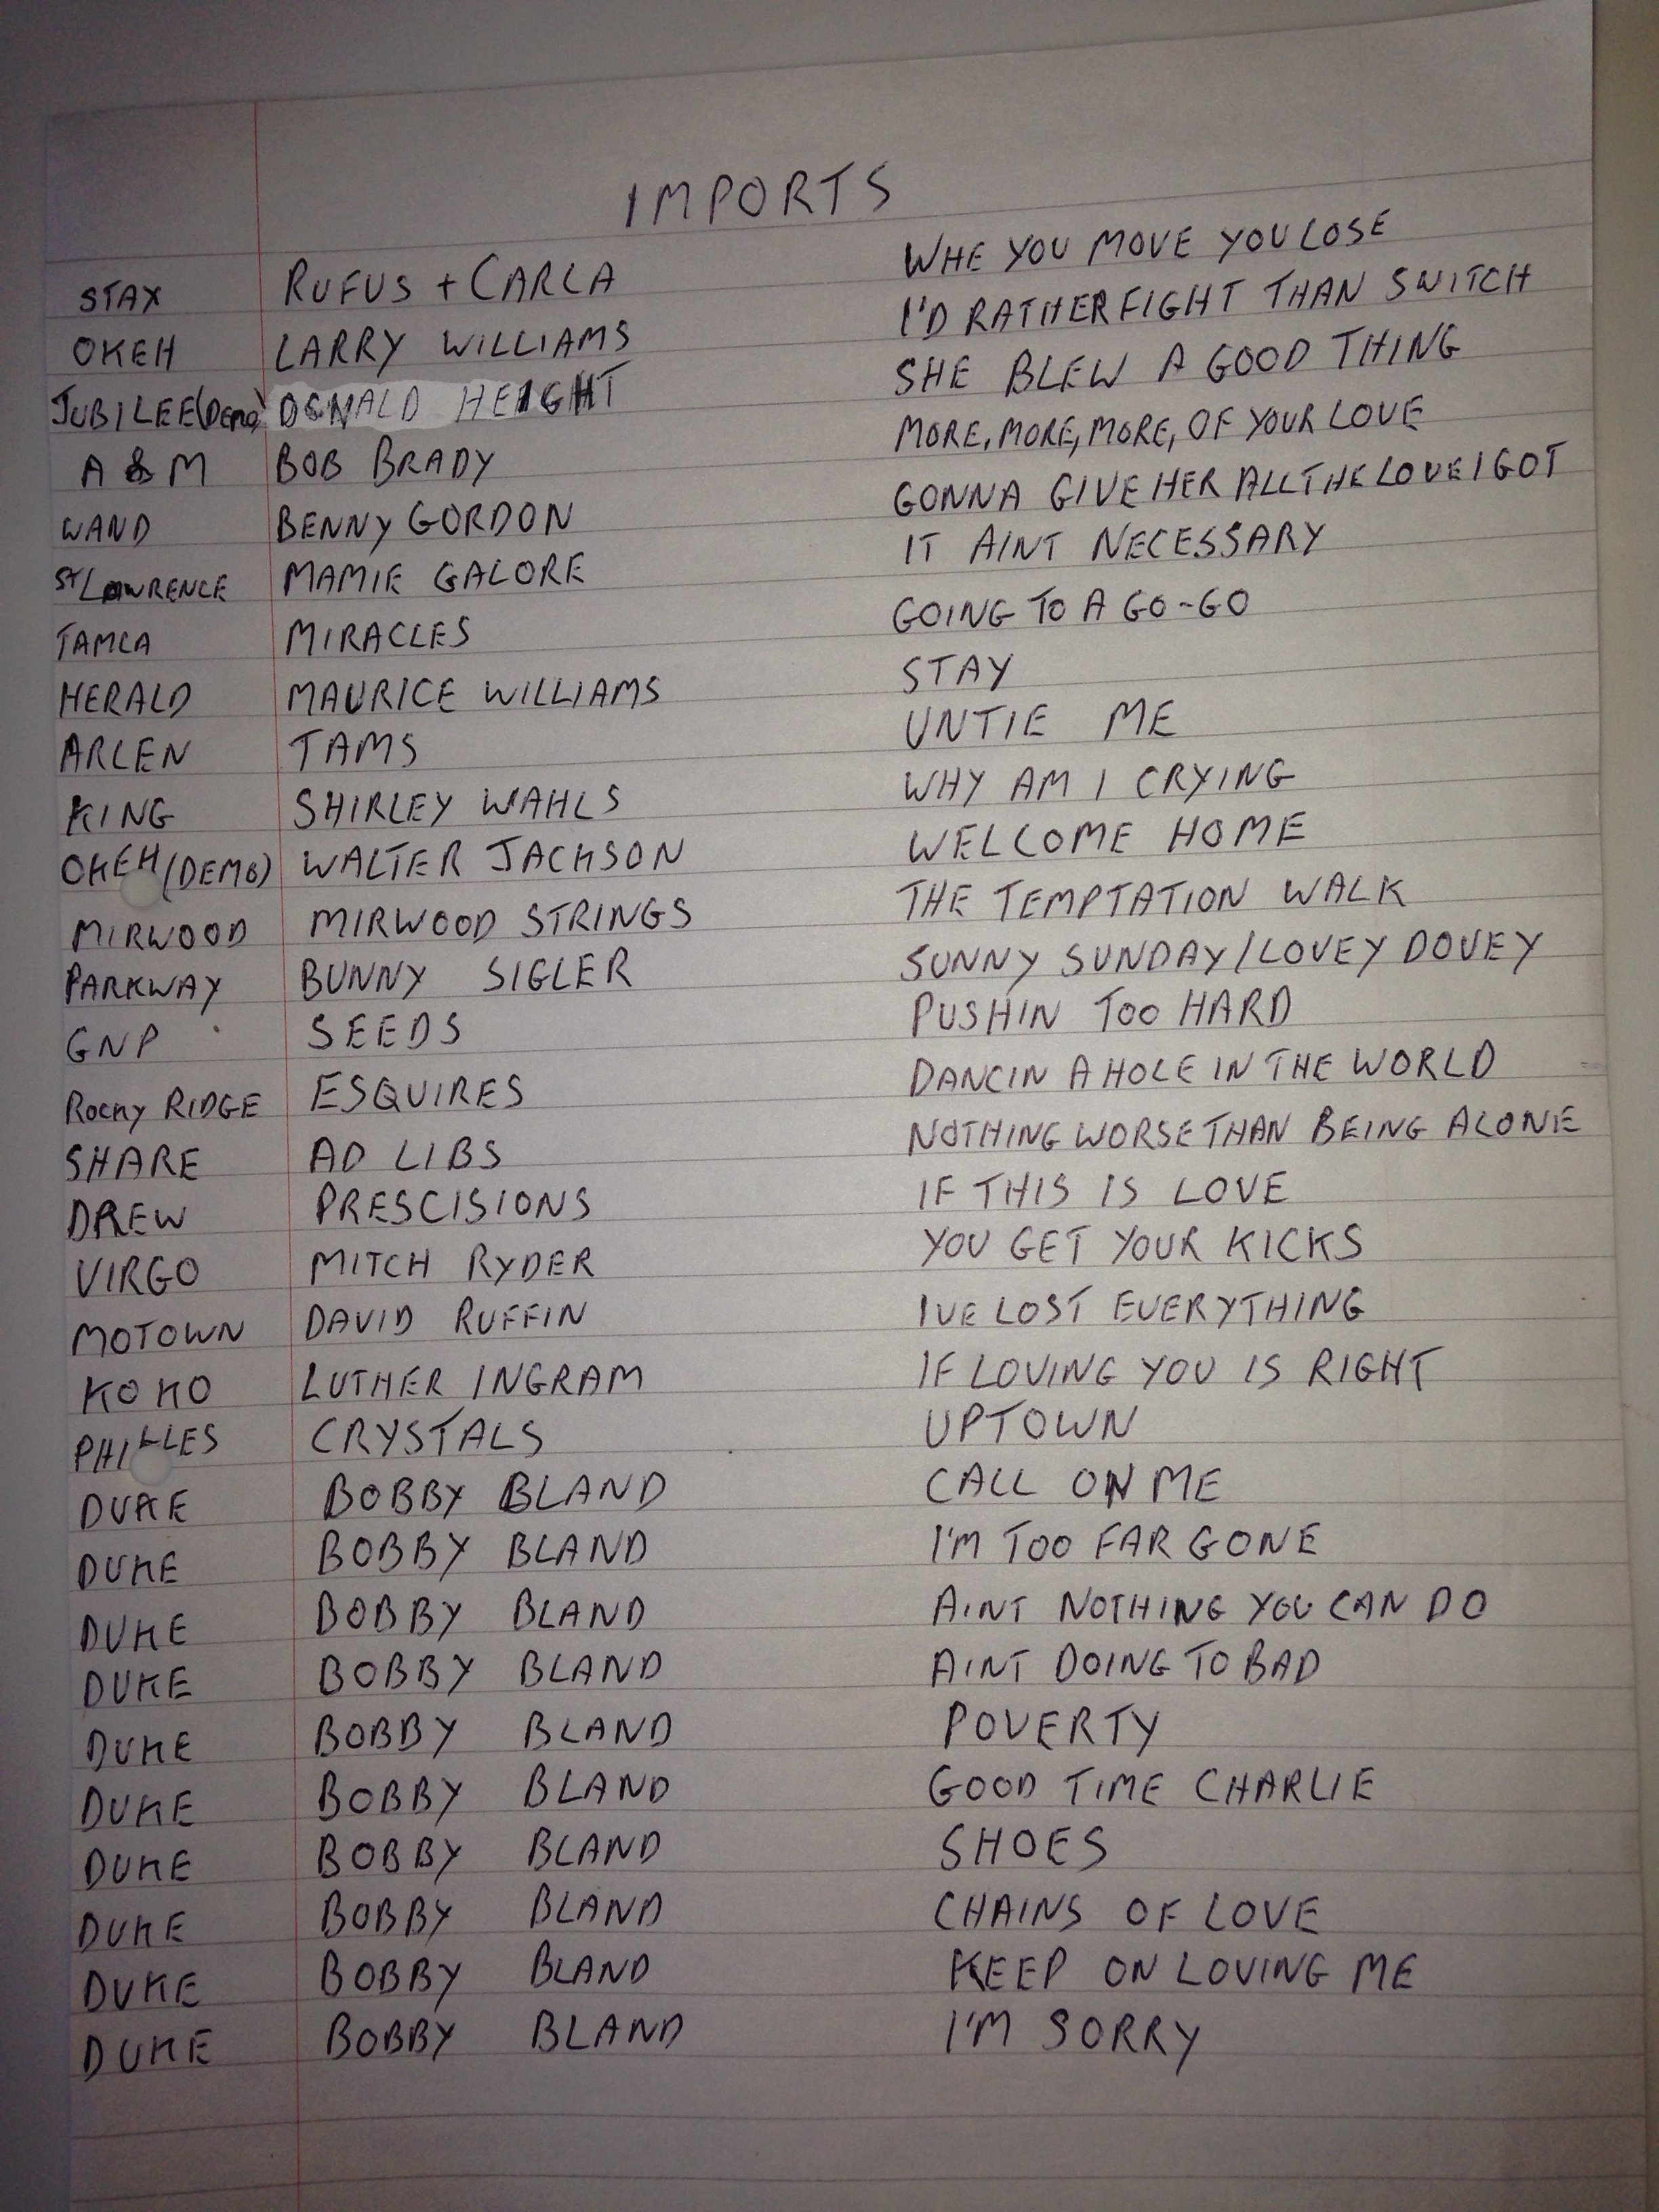 IMPORTS
STAX RUFUS + CARLA WHE YOU MOVE YOU LOSE
OKEH LARRY WILLIAMS I'D RATHER FIGHT THAN SWITCH
JUBILEE (DEMO) DONALD HEIGHT SHE BLEW A GOOD THING
A & M BOB BRADY MORE, MORE, MORE, OF YOUR LOVE
WAND BENNY GORDON GONNA GIVE HER ALL THE LOVE I GOT
ST LAWRENCE MAMIE GALORE IT AINT NECESSARY
TAMLA MIRACLES GOING TO A GO-GO
HERALD MAURICE WILLIAMS STAY
ARLEN TAMS UNTIE ME
KING SHIRLEY WAHLS WHY AM I CRYING
OKEH (DEMO) WALTER JACKSON WELCOME HOME
MIRWOOD MIRWOOD STRINGS THE TEMPTATION WALK
PARKWAY BUNNY SIGLER SUNNY SUNDAY / LOVEY DOVEY
GNP SEEDS PUSHIN TOO HARD
ROCKY RIDGE ESQUIRES DANCIN A HOLE IN THE WORLD
SHARE AD LIBS NOTHING WORSE THAN BEING ALONE
DREW PRESCISIONS IF THIS IS LOVE
VIRGO MITCH RYDER YOU GET YOUR KICKS
MOTOWN DAVID RUFFIN IVE LOST EVERYTHING
KO KO LUTHER INGRAM IF LOVING YOU IS RIGHT
PHILLES CRYSTALS UPTOWN
DUKE BOBBY BLAND CALL ON ME
DUKE BOBBY BLAND I'M TOO FAR GONE
DUKE BOBBY BLAND AINT NOTHING YOU CAN DO
DUKE BOBBY BLAND AINT DOING TO BAD
DUKE BOBBY BLAND POVERTY
DUKE BOBBY BLAND GOOD TIME CHARLIE
DUKE BOBBY BLAND SHOES
DUKE BOBBY BLAND CHAINS OF LOVE
DUKE BOBBY BLAND KEEP ON LOVING ME
DUKE BOBBY BLAND I'M SORRY